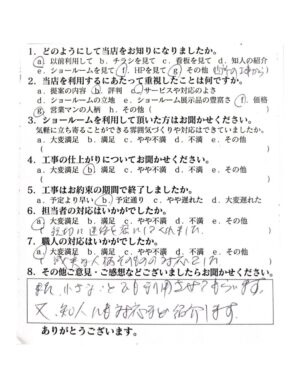 1. どのようにして当店をお知りになりましたか。
a. 以前利用して b. チラシを見て c. 看板を見て d. 知人の紹介
e. ショールームを見て f. HPを見て g. その他(
2. 当店を利用するにあたって重視したことは何ですか。
a. 提案の内容 b. 評判 c. サービスや対応のよさ
d. ショールームの立地 e. ショールーム展示品の豊富さ f. 価格
g. 営業マンの人柄 h. その他(
3. ショールームを利用して頂いた方はお聞かせください。
気軽に立ち寄ることができる雰囲気づくりや対応はできていましたか。
a. 大変満足 b. 満足 c. やや不満 d. 不満 e. その他
( )
4. 工事の仕上がりについてお聞かせください。
a. 大変満足 b. 満足 c. やや不満 d. 不満 e. その他
( )
5. 工事はお約束の期間で終了しましたか。
a. 予定より早い b. 予定通り c. やや遅れた d. 大変遅れた
6. 担当者の対応はいかがでしたか。
a. 大変満足 b. 満足 c. やや不満 d. 不満 e. その他
7. 職人の対応はいかがでしたか。
a. 大変満足 b. 満足 c. やや不満 d. 不満 e. その他
8. その他ご意見・ご感想などございましたらお聞かせください。
また、小さなことでも利用させてもらいます。
又、知人にも紹介します。
ありがとうございます。